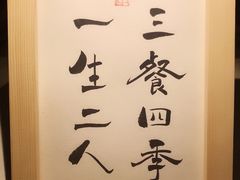 三餐四季
一生二人